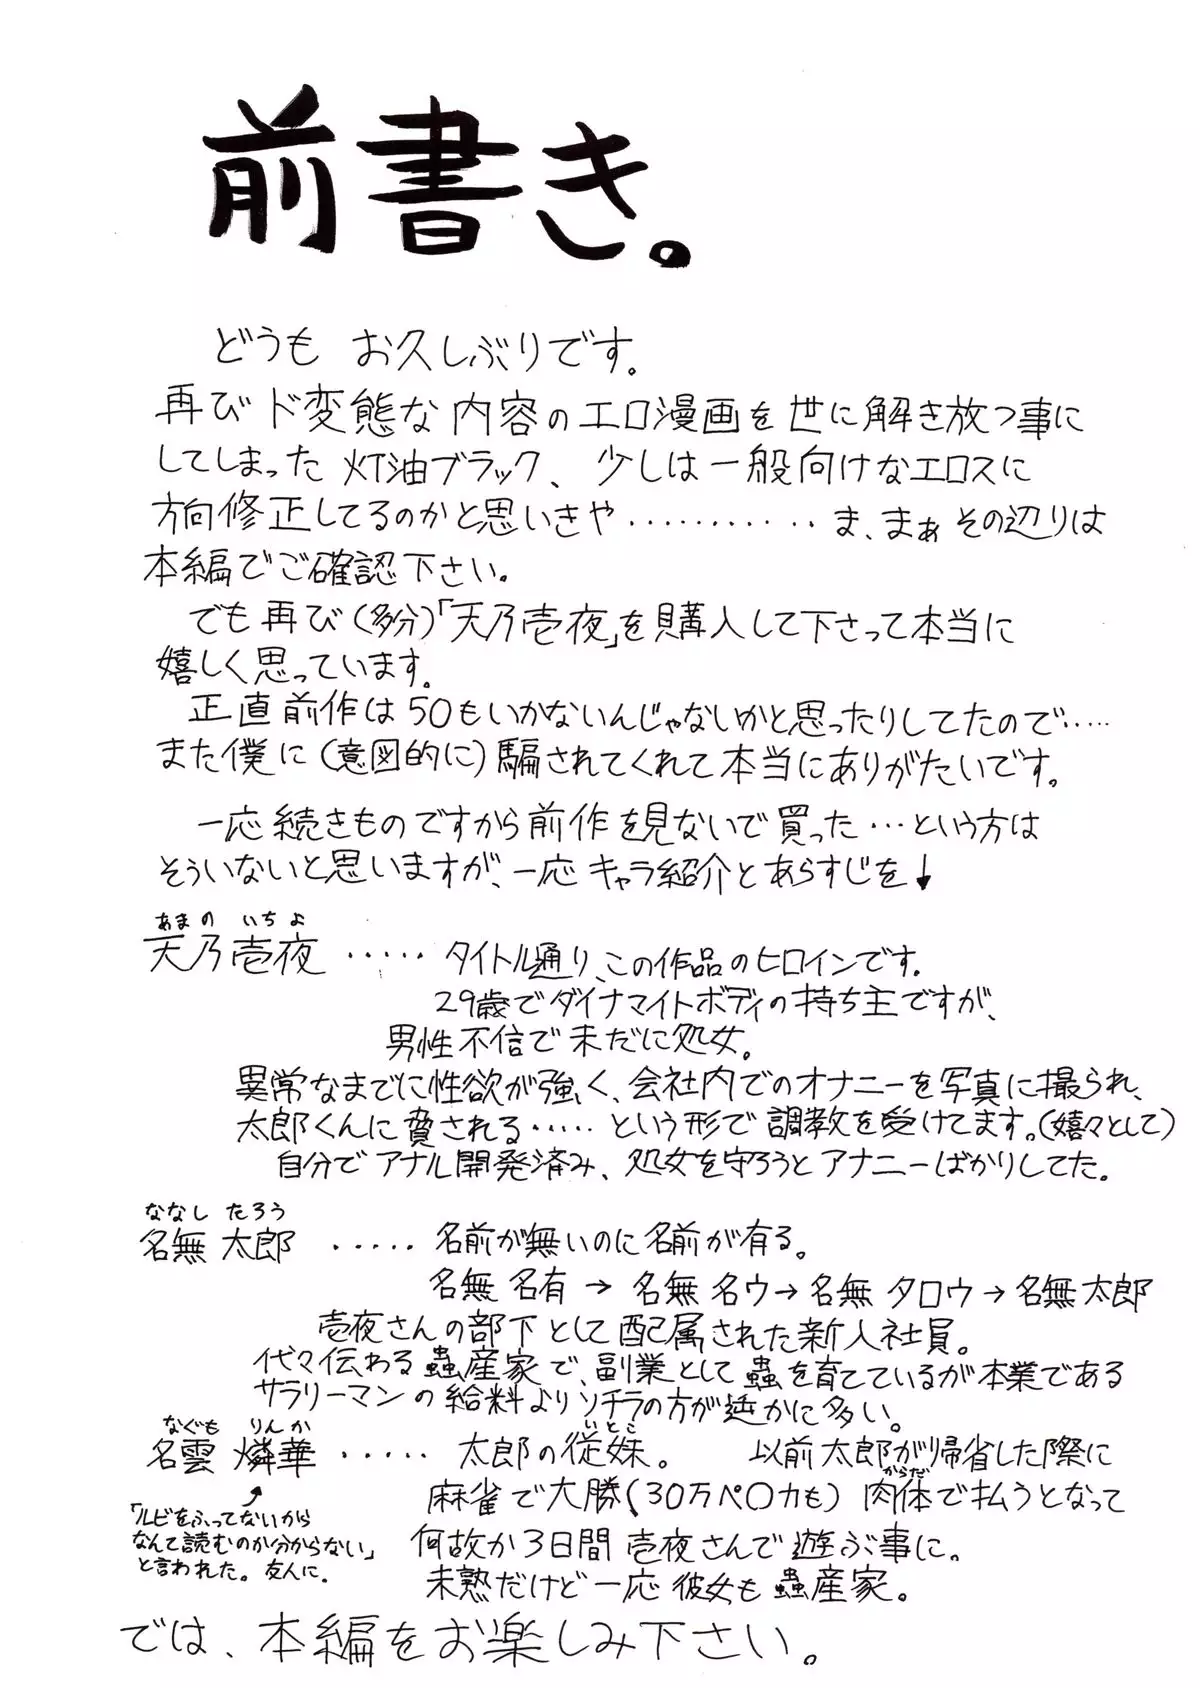 前書き。
どうも お久しぶりです。
再びド変態な内容のエロ漫画を世に解き放つ事に
してしまった灯油ブラック、少しは一般向けなエロスに
方向修正してるのかと思いきや………… ま、まぁその辺りは
本編でご確認下さい。
でも再び(多分)「天乃壱夜」を購入して下さって本当に
嬉しく思っています。
正直前作は50もいかないんじゃないかと思ったりしてたので‥‥
また僕に(意図的に)騙されてくれて本当にありがたいです。
一応続きものですから前作を見ないで買った…という方は
そういないと思いますが、一応キャラ紹介とあらすじを↓
あまの いちよ
天乃壱夜 ・・・・・ タイトル通り、この作品のヒロインです。
29歳でダイナマイトボディの持ち主ですが、
男性不信で未だに処女。
異常なまでに性欲が強く、会社内でのオナニーを写真に撮られ、
太郎くんに脅される・・・・・という形で調教を受けてます。(嬉々として)
自分でアナル開発済み、処女を守ろうとアナニーばかりしてた。
ななし たろう
名無 太郎 ・・・・・ 名前が無いのに名前が有る。
名無 名有 → 名無 名ウ → 名無 タロウ → 名無 太郎
壱夜さんの部下として配属された新人社員。
代々伝わる蟲産家で、副業として蟲を育てているが本業である
サラリーマンの給料よりソチラの方が遥かに多い。
なぐも りんか
名雲 燐華 ・・・・・ 太郎の従妹。 以前太郎が帰省した際に
いとこ
麻雀で大勝(30万ペ〇カも) 肉体で払うとなって
からだ
何故か3日間 壱夜さんで遊ぶ事に。
未熟だけど一応 彼女も 蟲産家。
「ルビをふってないから
なんて読むのか分からない」
と言われた。友人に.
では、本編をお楽しみ下さい。